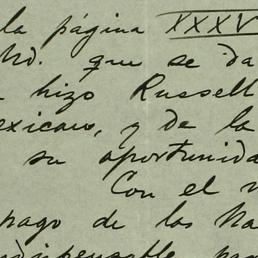 la página XXXV
Md. que se da
hizo Russell
exicano, y de la
su oportunida
Con el
pago de los Na
indispensable